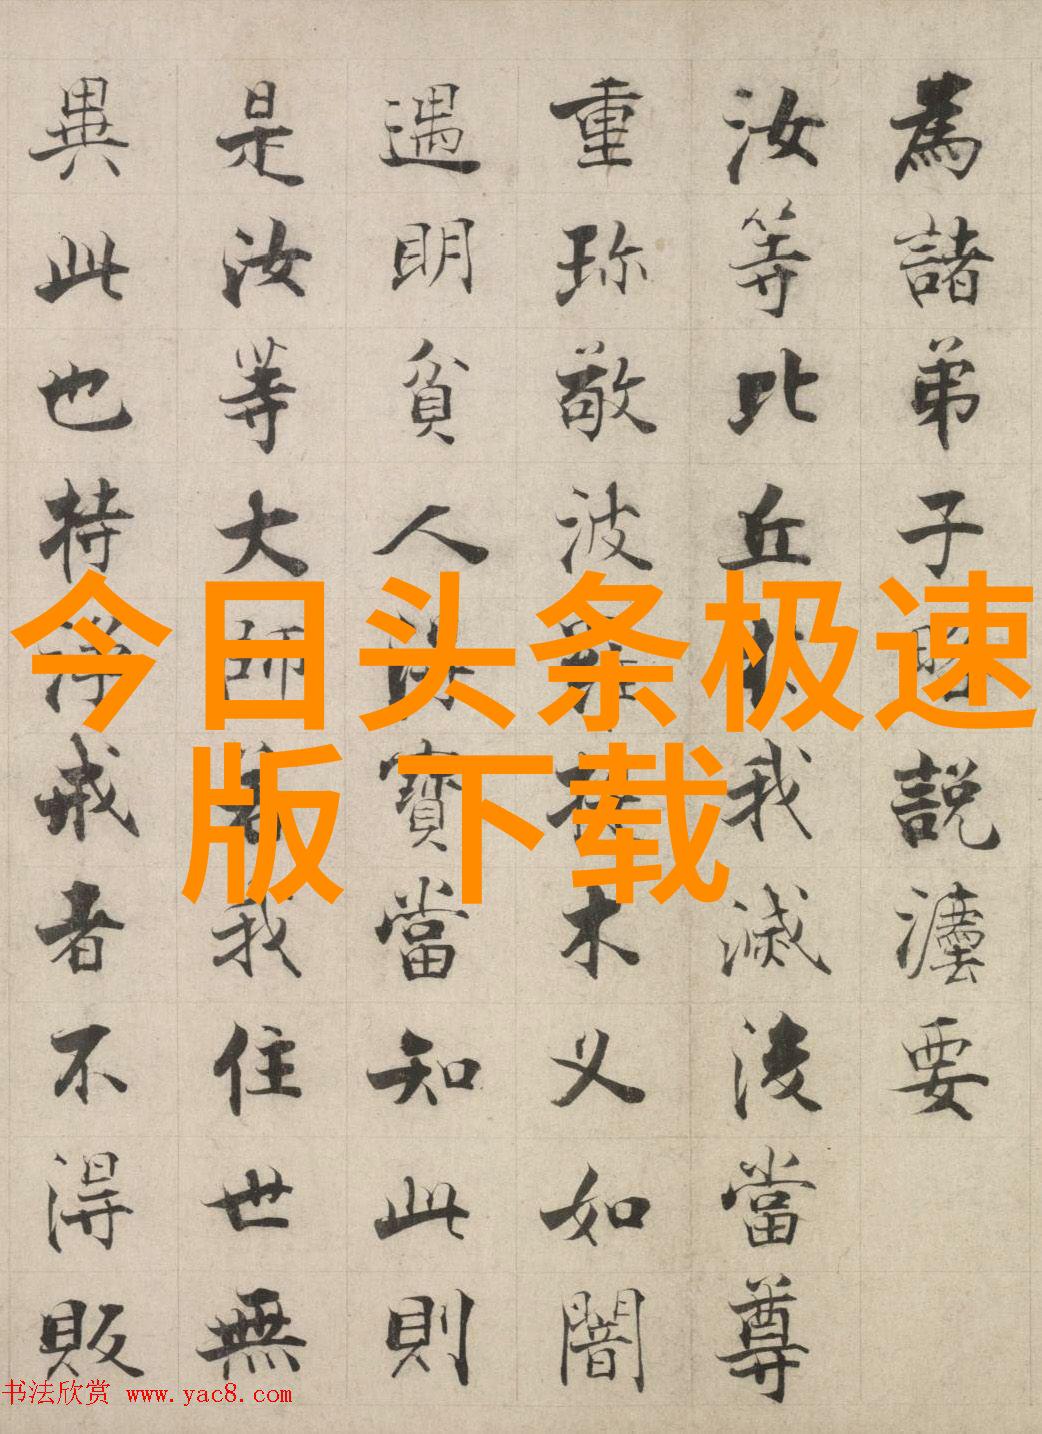 為諸弟子略説灋要
汝等比丘於我滅後當尊
重珎敬波羅提木叉如闇
遇明貧人得寶當知此則
是汝等大師若我住世無
異此也持淨戒者不得販
今日头条极速
版 下载
书法欣赏 www.yac8.com